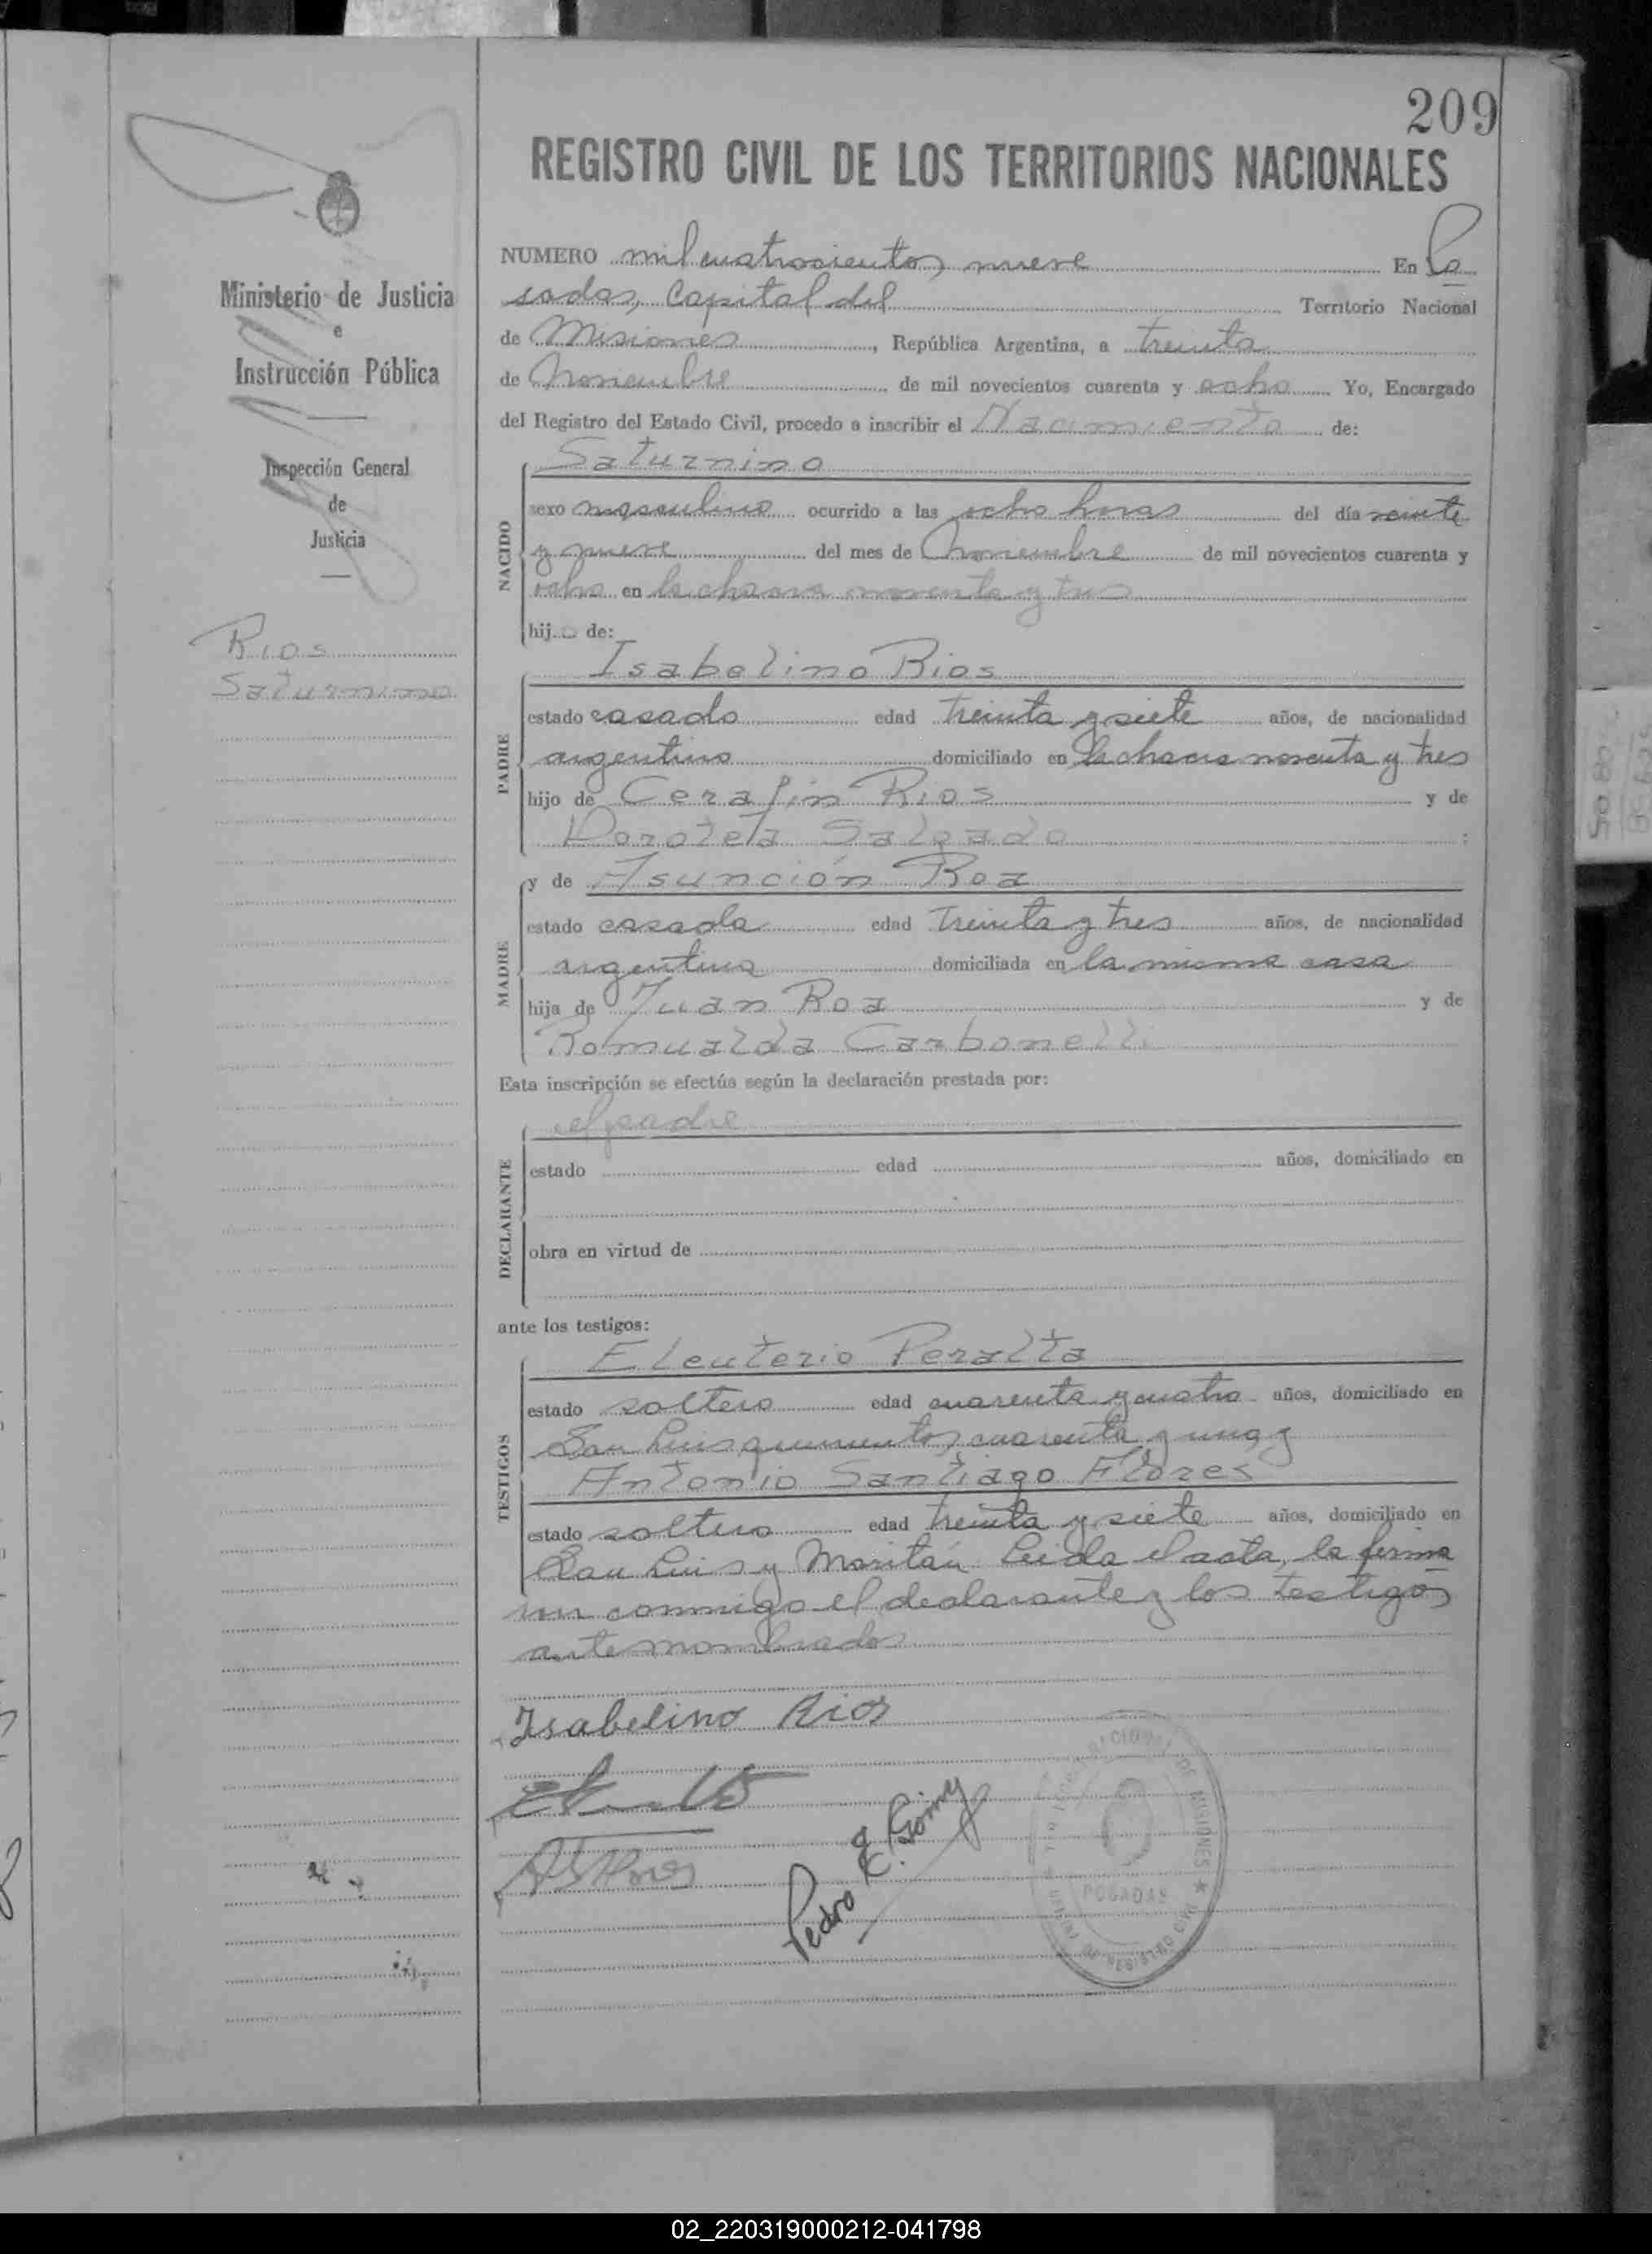 209
REGISTRO CIVIL DE LOS TERRITORIOS NACIONALES
Ministerio de Justicia
e
Instrucción Pública
Inspección General
de
Justicia
Rios
Saturnino
NUMERO mil cuatrocientos nueve En Po
sadas, Capital del Territorio Nacional
de Misiones, República Argentina, a treinta
de Noviembre de mil novecientos cuarenta y ocho Yo, Encargado
del Registro del Estado Civil, procedo a inscribir el Nacimiento de:
Saturnino
NACIDO
sexo masculino ocurrido a las ocho horas del día veinte
y nueve del mes de Noviembre de mil novecientos cuarenta y
ocho en la chacra noventa y tres
hijo de:
Isabelino Rios
PADRE
estado casado edad treinta y siete años, de nacionalidad
argentino domiciliado en la chacra noventa y tres
hijo de Cerafin Rios y de
Dorotea Salgado ;
y de Asunción Roa
MADRE
estado casada edad treinta y tres años, de nacionalidad
argentina domiciliada en la misma casa
hija de Juan Roa y de
Romualda Carbonelli
Esta inscripción se efectúa según la declaración prestada por:
el padre
DECLARANTE
estado edad años, domiciliado en
obra en virtud de
ante los testigos:
Eleuterio Peralta
TESTIGOS
estado soltero edad cuarenta y cuatro años, domiciliado en
San Luis quinientos cuarenta y uno y
Antonio Santiago Flores
estado soltero edad treinta y siete años, domiciliado en
San Luis y Moritán Leida el acta, la firma
un conmigo el declarante y los testigos
antenombrados
Isabelino Rios
Pedro K. Goiny
POSADAS
02_220319000212-041798